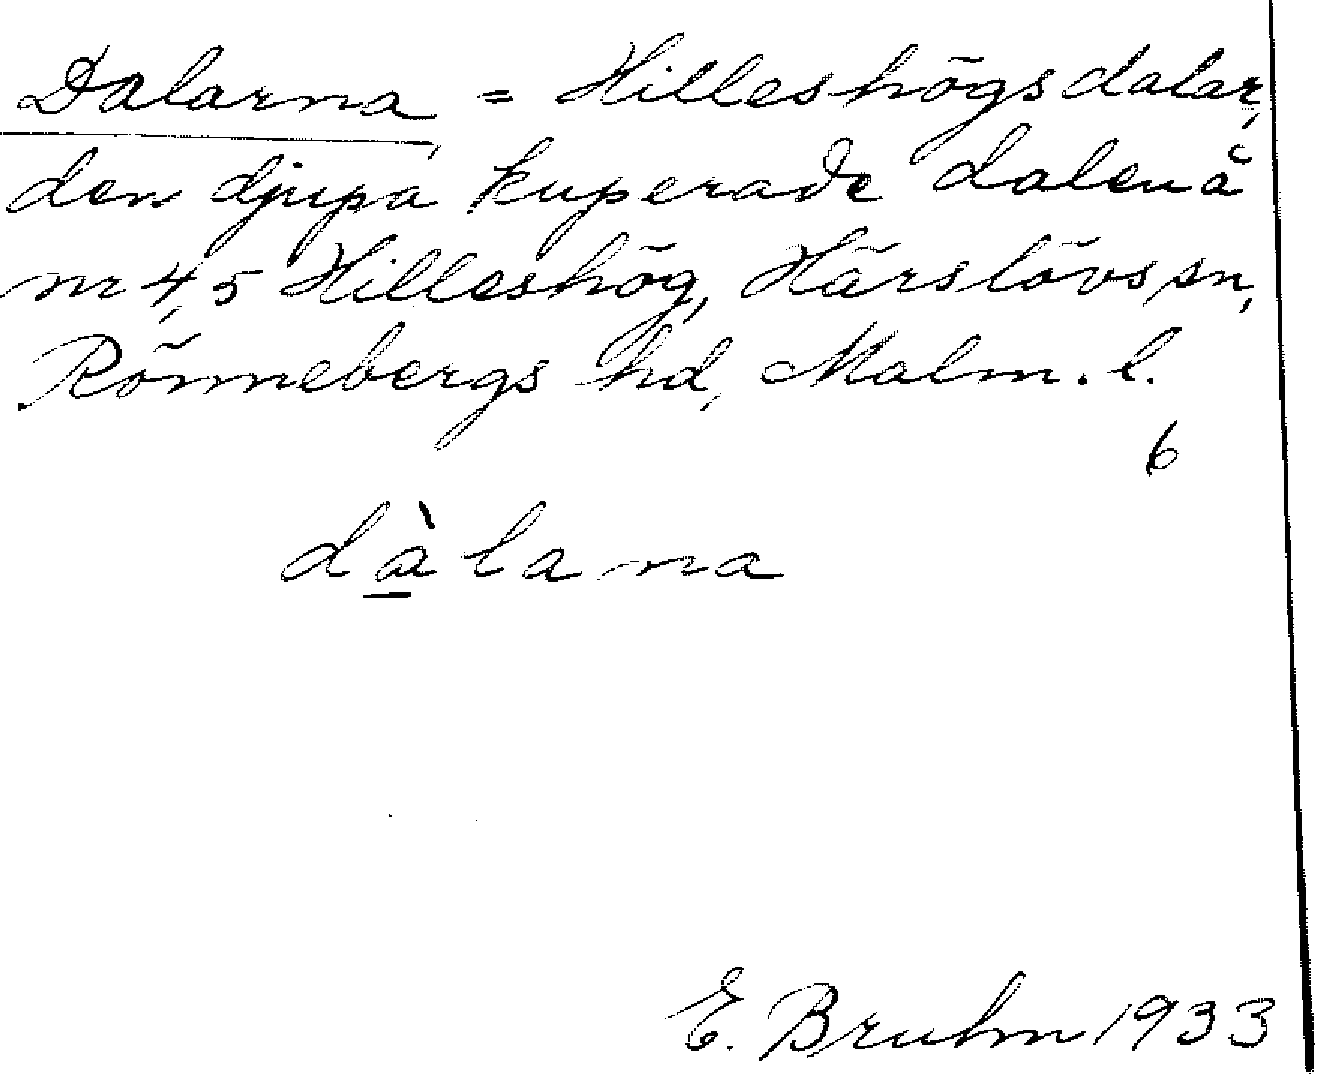 Dalarna = Hilleshögs dalar,
den djupa kuperade dalen å
nr 4, 5 Hilleshög, Härslövs sn,
Rönnebergs hd, Malm. l.
6
dàlana
E. Bruhn 1933